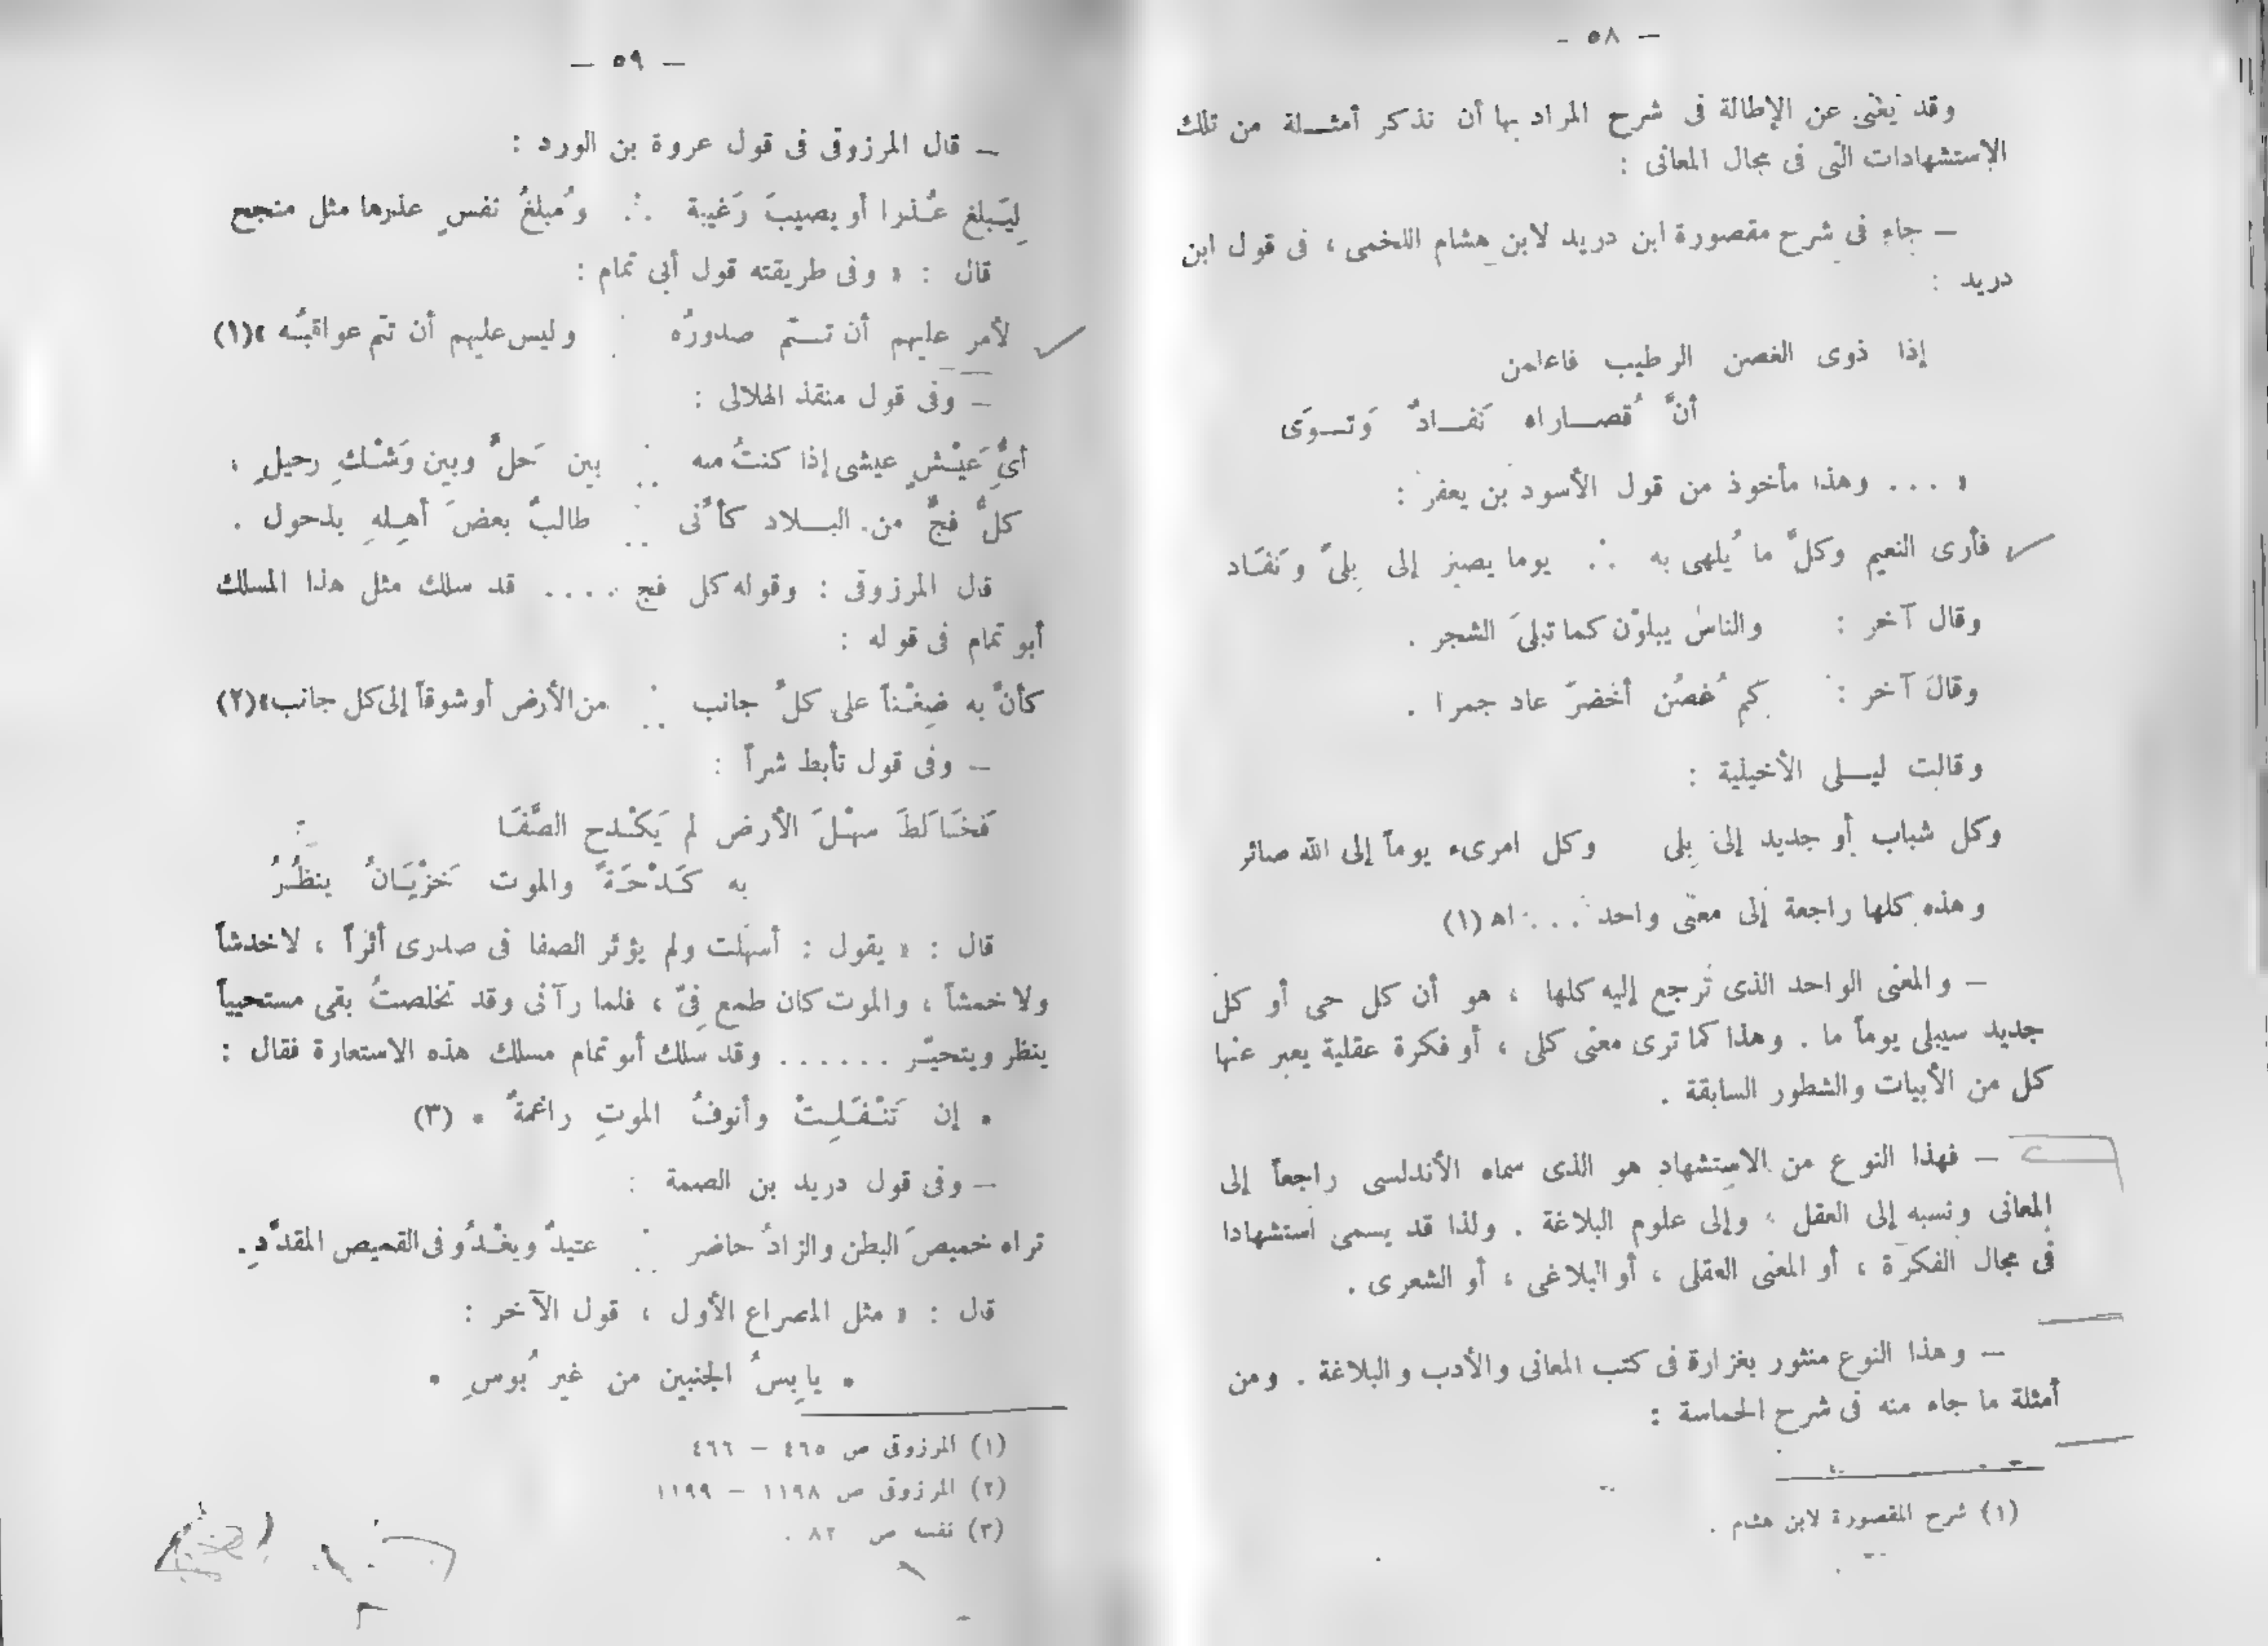 — ٥٨ —
وقد يغنى عن الإطالة فى شرح المراد بها أن نذكر أمثـلة من تلك
الاستشهادات التى فى مجال المعانى :
— جاء فى شرح مقصورة ابن دريد لابن هشام اللخمى ، فى قول ابن
دريد :
إذا ذوى الغصن الرطيب فاعلمن
أنَّ قُصـاراه نَفـادٌ وَتـوَى
« ... وهذا مأخوذ من قول الأسود بن يعفر :
فأرى النعيم وكلَّ ما يُلهى به ∴ يوما يصير إلى بِلىً ونَفَاد
وقال آخر : والناسُ يبلوْن كما تبلىَ الشجر .
وقال آخر : كم غُصْن أخضرّ عاد جمرا .
وقالت ليـلى الأخيلية :
وكل شباب أو جديد إلى بِلى وكل امرىء يوماً إلى الله صائر
وهذه كلها راجعة إلى معنى واحد ... اه (١)
— والمعنى الواحد الذى تَرجع إليه كلها ، هو أن كل حى أو كل
جديد سيبلى يوماً ما . وهذا كما ترى معنى كلى ، أو فكرة عقلية يعبر عنها
كل من الأبيات والشطور السابقة .
— فهذا النوع من الاستشهاد هو الذى سماه الأندلسى راجعاً إلى
المعانى ونسبه إلى العقل ، وإلى علوم البلاغة . ولذا قد يسمى استشهادا
فى مجال الفكرة ، أو المعنى العقلى ، أو البلاغى ، أو الشعرى .
— وهذا النوع منثور بغزارة فى كتب المعانى والأدب والبلاغة . ومن
أمثلة ما جاء منه فى شرح الحماسة :
(١) شرح المقصورة لابن هشام .
— ٥٩ —
— قال المرزوقى فى قول عروة بن الورد :
لِيَبلغ عُـذرا أو يصيبَ رَغيبة ∴ ومُبلغُ نفسٍ عذرها مثل منجح
قال : « وفى طريقته قول أبى تمام :
لأمر عليهم أن تـتمّ صدورُه وليس عليهم أن تتم عواقبُـه »(١)
— وفى قول منقذ الهلالى :
أىُّ عَيْـشٍ عيشى إذا كنتُ منه بين حَلٍّ وبين وَشْـكِ رحيلِ .
كلُّ فجٍّ من البـلاد كأنى طالبٌ بعضَ أهـلِهِ بذحول .
قال المرزوقى : وقوله كل فج .... قد سلك مثل هذا المسلك
أبو تمام فى قوله :
كأنَّ به ضِغْـناً على كلِّ جانب من الأرض أو شوقاً إلى كل جانب»(٢)
— وفى قول تأبط شراً :
فَخَـالَطَ سهْـلَ الأرض لم يَكْـدح الصَّفَـا
به كَـدْحَـةً والموت خَزْيَـانُ ينظُـرُ
قال : « يقول : أسهَلت ولم يؤثر الصفا فى صدرى أثراً ، لا خدشاً
ولا خمشاً ، والموت كان طمع فىِّ ، فلما رآنى وقد تخلصتُ بقى مستحيياً
ينظر ويتحيّـر ...... وقد سلك أبو تمام مسلك هذه الاستعارة فقال :
* إن تَنْـفَـلِـتْ وأنوفُ الموتِ راغمةٌ * (٣)
— وفى قول دريد بن الصمة :
تراه خميصَ البطن والزادُ حاضر عتيدٌ ويغْـدُو فى القميص المقدَّدِ .
قال : « مثل المصراع الأول ، قول الآخر :
* يابِسُ الجنبين من غير بُوسِ *
(١) المرزوقى ص ٤٦٥ – ٤٦٦
(٢) المرزوقى ص ١١٩٨ – ١١٩٩
(٣) نفسه ص ٨٢ .